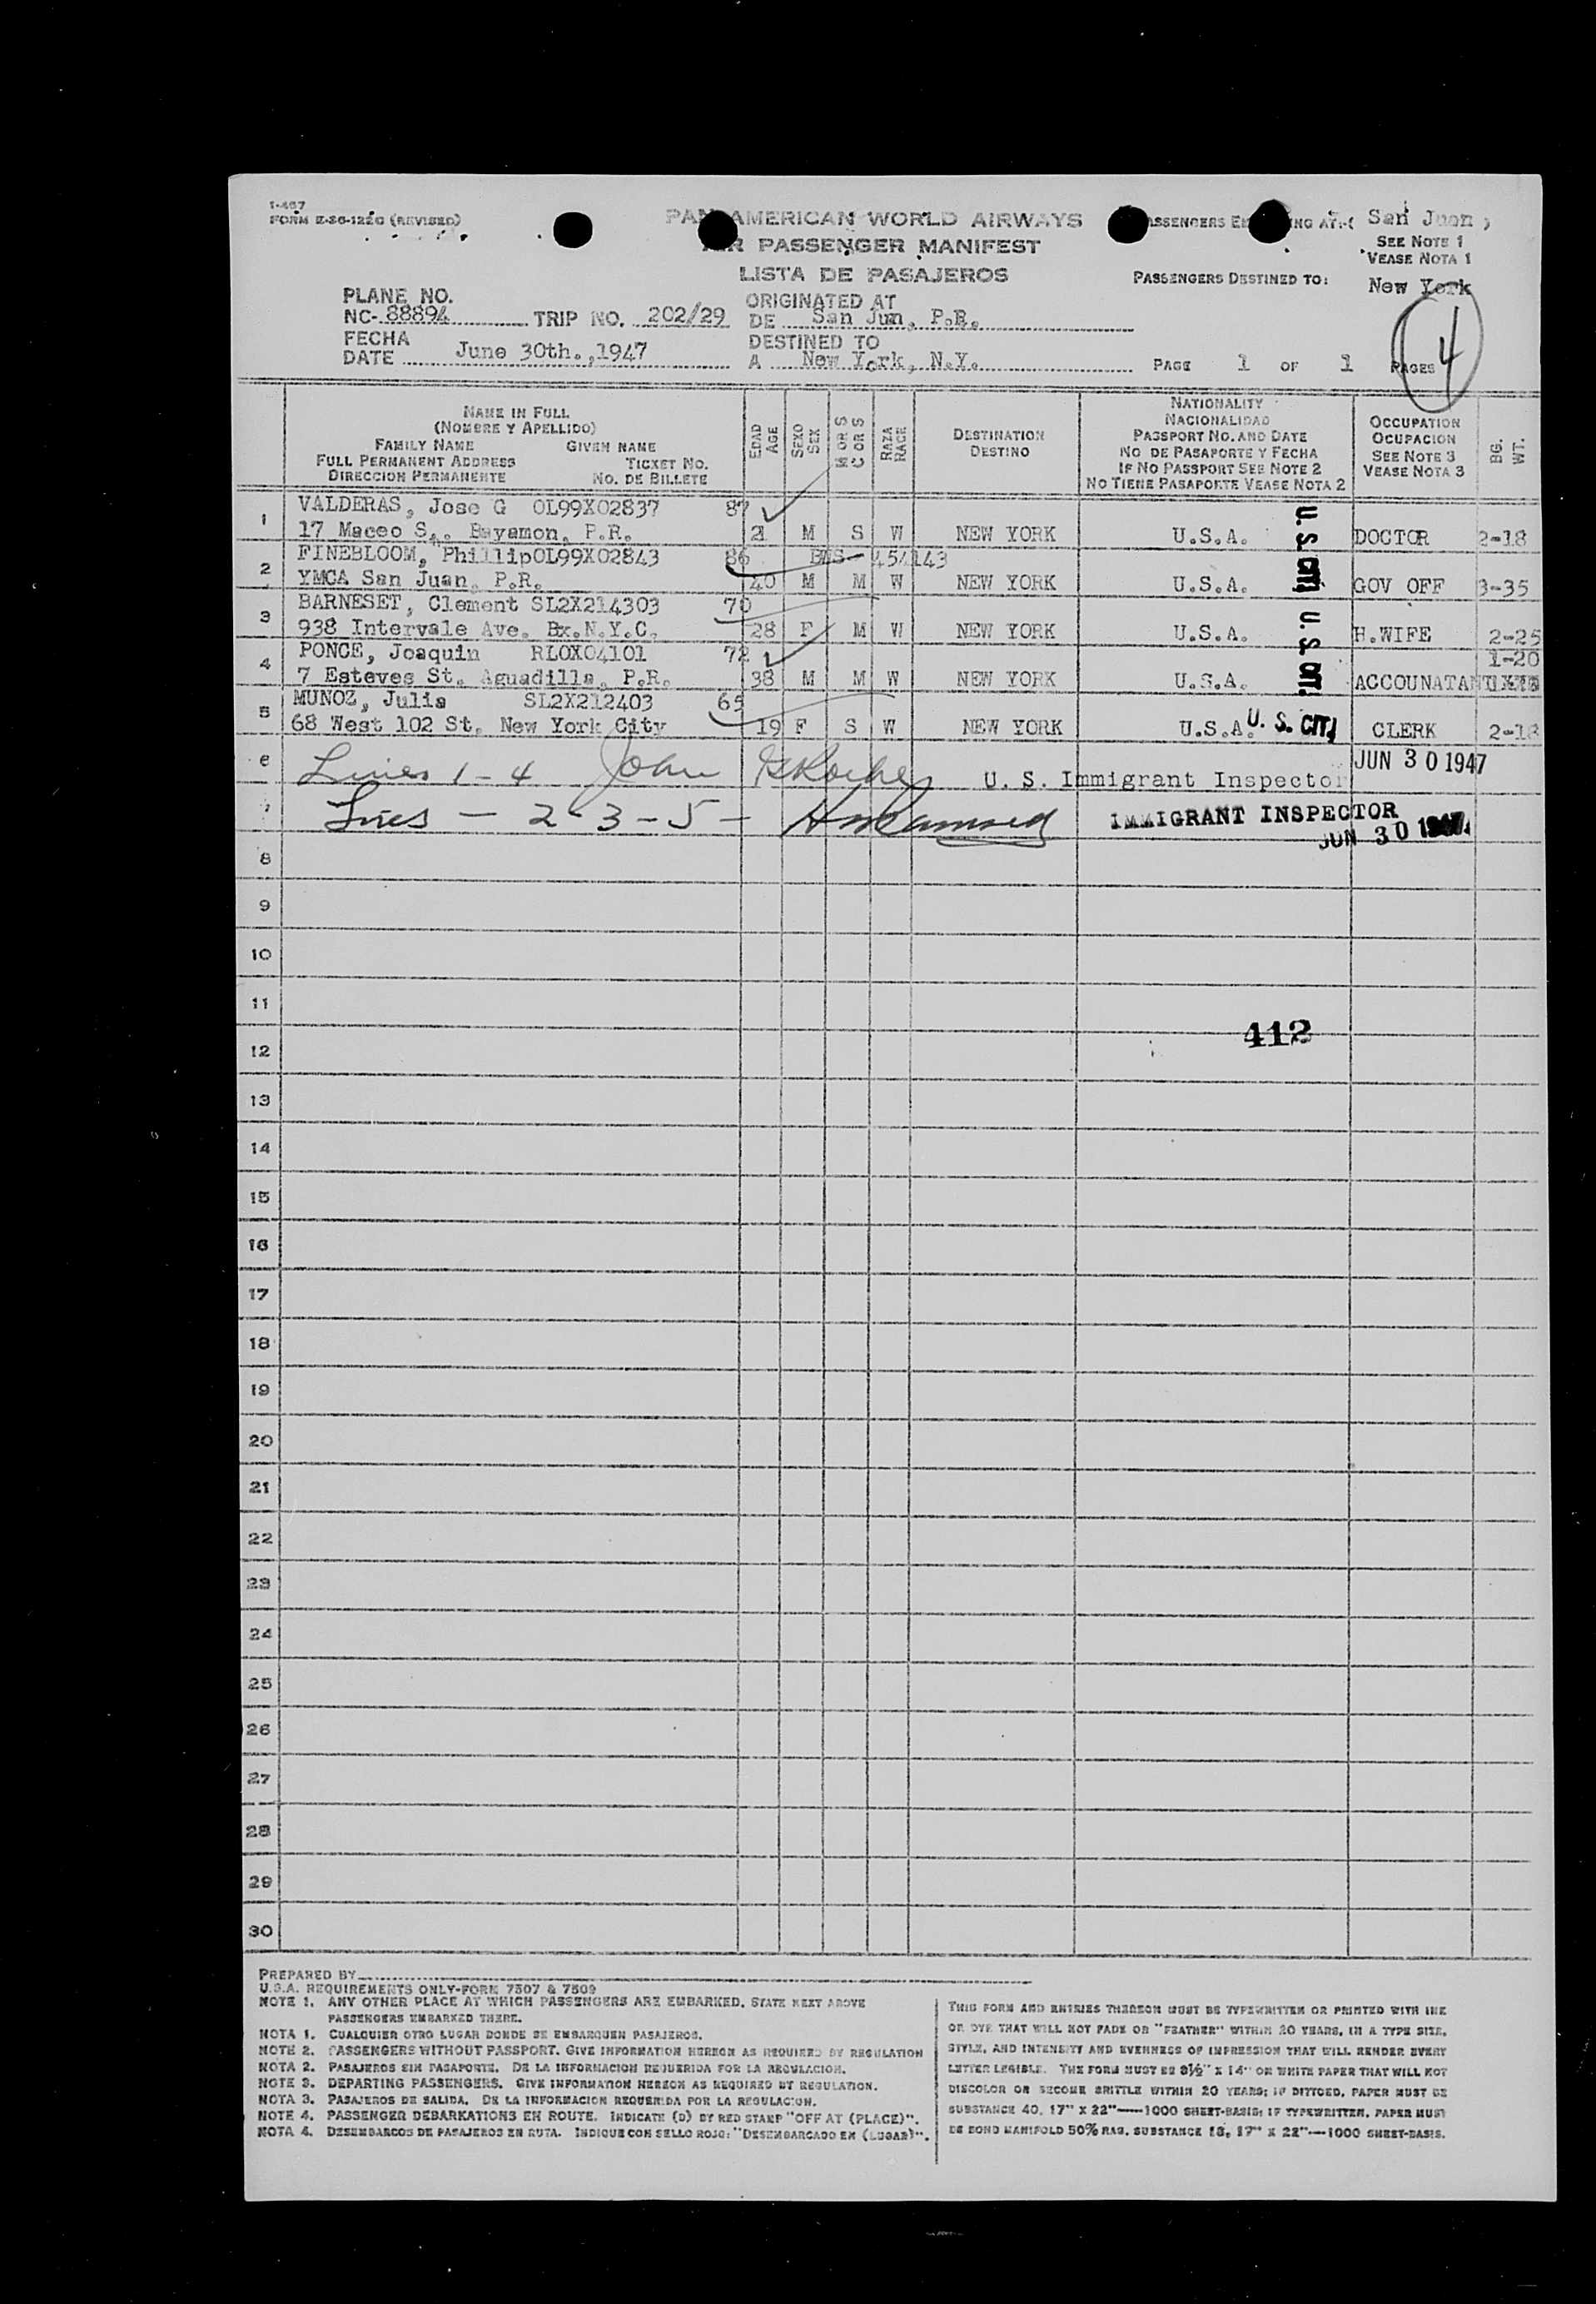 I-467
FORM E-36-122G (REVISED)
PAN AMERICAN WORLD AIRWAYS
AIR PASSENGER MANIFEST
LISTA DE PASAJEROS
PASSENGERS EMBARKING AT:-( San Juan,
SEE NOTE 1
VEASE NOTA 1
PASSENGERS DESTINED TO: New York
PLANE NO.
NC- 88894 TRIP NO. 202/29
ORIGINATED AT
DE San Jun, P.R.
FECHA
DATE June 30th.,1947
DESTINED TO
A New York, N.Y.
PAGE 1 OF 1 PAGES 4
NAME IN FULL
(NOMBRE Y APELLIDO)
FAMILY NAME GIVEN NAME
FULL PERMANENT ADDRESS TICKET NO.
DIRECCION PERMANENTE NO. DE BILLETE
EDAD AGE
SEXO SEX
M OR S
C OR S
RAZA RACE
DESTINATION
DESTINO
NATIONALITY
NACIONALIDAD
PASSPORT NO. AND DATE
NO DE PASAPORTE Y FECHA
IF NO PASSPORT SEE NOTE 2
NO TIENE PASAPORTE VEASE NOTA 2
OCCUPATION
OCUPACION
SEE NOTE 3
VEASE NOTA 3
BG. WT.
1 VALDERAS, Jose G OL99X02837 87
17 Maceo S,. Bayamon, P.R. 21 M S W NEW YORK U.S.A. DOCTOR 2-18
U. S. CIT.
2 FINEBLOOM, PhillipOL99X02843 86 454143
YMCA San Juan, P.R. 40 M M W NEW YORK U.S.A. GOV OFF 3-35
3 BARNESET, Clement SL2X214303 70
938 Intervale Ave. Bx.N.Y.C. 28 F M W NEW YORK U.S.A. H.WIFE 2-25
U. S. CIT.
4 PONCE, Joaquin RLOX04101 72 1-20
7 Esteves St. Aguadilla, P.R. 38 M M W NEW YORK U.S.A. ACCOUNATANT
5 MUNOZ, Julia SL2X212403 65
68 West 102 St. New York City 19 F S W NEW YORK U.S.A. U. S. CIT. CLERK 2-18
6 Lines 1-4 John U. S. Immigrant Inspector JUN 30 1947
7 Lines - 2-3-5- IMMIGRANT INSPECTOR
JUN 30 1947
8
9
10
11
412
12
13
14
15
16
17
18
19
20
21
22
23
24
25
26
27
28
29
30
PREPARED BY
U.S.A. REQUIREMENTS ONLY-FORM 7507 & 7509
NOTE 1. ANY OTHER PLACE AT WHICH PASSENGERS ARE EMBARKED, STATE NEXT ABOVE
PASSENGERS EMBARKED THERE.
NOTA 1. CUALQUIER OTRO LUGAR DONDE SE EMBARQUEN PASAJEROS.
NOTE 2. PASSENGERS WITHOUT PASSPORT. GIVE INFORMATION HEREON AS REQUIRED BY REGULATION
NOTA 2. PASAJEROS SIN PASAPORTE. DE LA INFORMACION REQUERIDA POR LA REGULACION.
NOTE 3. DEPARTING PASSENGERS. GIVE INFORMATION HEREON AS REQUIRED BY REGULATION.
NOTA 3. PASAJEROS DE SALIDA. DE LA INFORMACION REQUERIDA POR LA REGULACION.
NOTE 4. PASSENGER DEBARKATIONS EN ROUTE. INDICATE (D) BY RED STAMP "OFF AT (PLACE)".
NOTA 4. DESEMBARCOS DE PASAJEROS EN RUTA. INDIQUE CON SELLO ROJO: "DESEMBARCADO EN (LUGAR)".
THIS FORM AND ENTRIES THEREON MUST BE TYPEWRITTEN OR PRINTED WITH INK
OR DYE THAT WILL NOT FADE OR "FEATHER" WITHIN 20 YEARS, IN A TYPE SIZE,
STYLE, AND INTENSITY AND EVENNESS OF IMPRESSION THAT WILL RENDER EVERY
LETTER LEGIBLE. THE FORM MUST BE 8½" X 14" ON WHITE PAPER THAT WILL NOT
DISCOLOR OR BECOME BRITTLE WITHIN 20 YEARS; IF DITTOED, PAPER MUST BE
SUBSTANCE 40, 17" X 22"—1000 SHEET-BASIS; IF TYPEWRITTEN, PAPER MUST
BE BOND MANIFOLD 50% RAG, SUBSTANCE 18, 17" X 22"—1000 SHEET-BASIS.